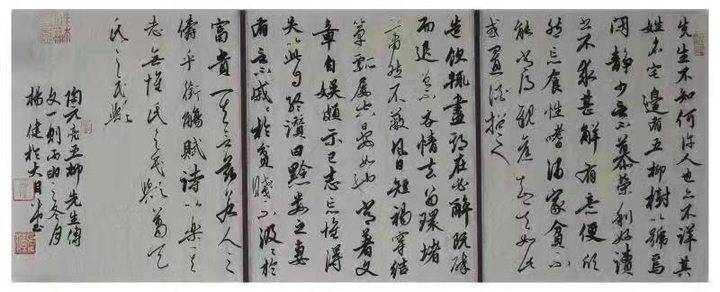 先生不知何许人也亦不详其
姓名宅邊有五柳樹以號焉
闲静少言不慕荣利好讀
书不求甚解有意便欣
然忘食性嗜酒家貧不
能常得親舊知其如此
或置酒招之
造饮辄盡期在必醉既醉
而退曾不吝情去留環堵
萧然不蔽風日短褐穿结
箪瓢屡空晏如也常著文
章自娱颇示己志忘怀得
失以此自终讚曰黔娄之妻
有言不戚戚於貧賤不汲汲於
富貴其言兹若人之
儔乎衔觴賦诗以樂其
志無懷氏之民歟葛天
氏之民歟
陶元亮五柳先生傳
文一则丙申之冬月
楊健於大目